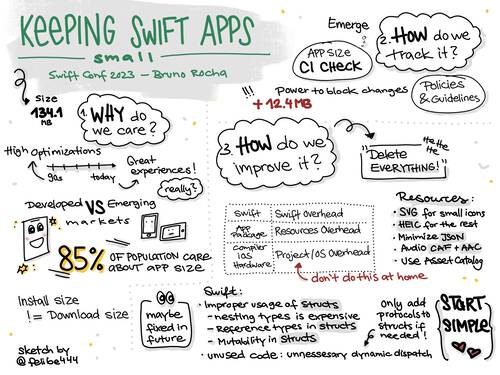 KEEPING SWIFT APPS
small
Swift Conf 2023 – Bruno Rocha
Size
134.1
MB
1. WHY do
we care?
High
Optimizations
90s
today
Great
experiences!
really?
Developed VS Emerging
markets
85% OF POPULATION CARE
ABOUT APP SIZE
Install size
!= Download size
maybe
fixed in
future
Sketch by
@felibe444
Emerge
APP SIZE
CI CHECK
2. HOW do we
track it?
Policies
& Guidelines
!!! Power to block changes
+ 12.4MB
3. HOW do we
improve it?
"Delete
EVERYTHING!"
He He
He
He
Swift Swift Overhead
App
Package Resources Overhead
Compiler
iOS
Hardware Project/OS Overhead
don't do this at home
Resources:
• SVG for small icons
• HEIC for the rest
• Minimize JSON
• Audio CAF + AAC
• Use Asset Catalog
Swift:
• Improper usage of structs
- nesting types is expensive
- Reference types in structs
- Mutability in structs
• unused code: unnessesary dynamic dispatch
only add
protocols to
structs if
needed!
START
SIMPLE